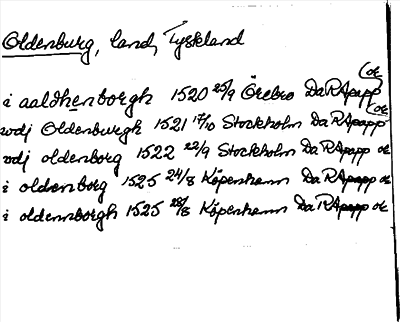 Oldenburg, land, Tyskland
(or
i aaldhenborgh 1520 25/9 Örebro DaRApapp
(or
wdj Oldenburgh 1521 17/10 Stockholm DaRApapp
wdj oldenborg 1522 22/9 Stockholm DaRApapp or
i oldenborg 1525 24/8 Köpenhamn DaRApapp or
i oldennborgh 1525 28/8 Köpenhamn DaRApapp or